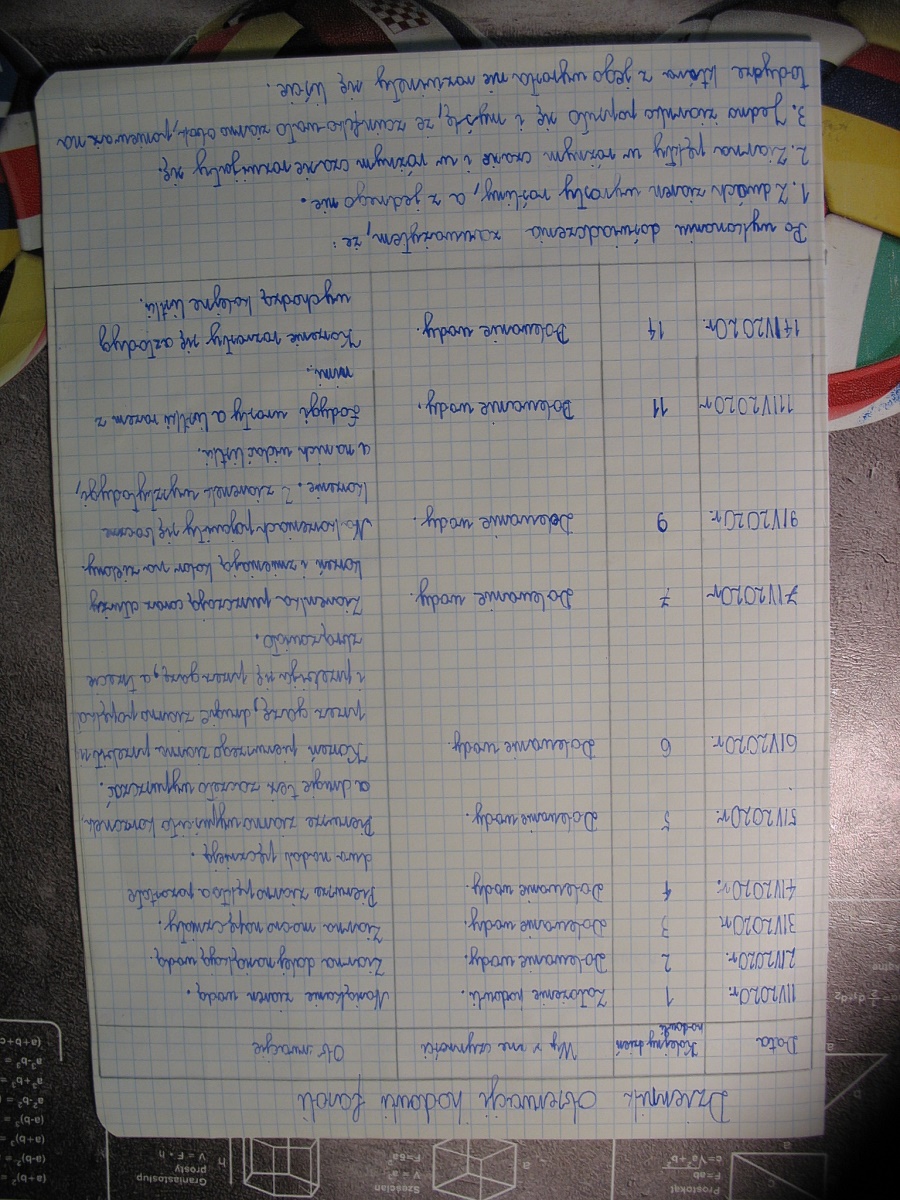 Dziennik obserwacji hodowli fasoli
Data Kolejny dzień hodowli Wykonane czynności Obserwacje
1 IV 2020r. 1 Założenie hodowli. Nasiąkanie ziaren wodą.
2 IV 2020r. 2 Dolewanie wody. Ziarna dalej namiękają wodą.
3 IV 2020r. 3 Dolewanie wody. Ziarna mocno napęczniały.
4 IV 2020r. 4 Dolewanie wody. Pierwsze ziarno pękło a pozostałe
dwa nadal pęcznieją.
5 IV 2020r. 5 Dolewanie wody. Pierwsze ziarno wypuściło korzonek,
a drugie też zaczęło wypuszczać.
6 IV 2020r. 6 Dolewanie wody. Korzeń pierwszego ziarna przebił się
przez gazę, drugie ziarno popękało
i przebija się przez gazę, a trzecie
zbrązowiało.
7 IV 2020r 7 Dolewanie wody. Ziarenka puszczają coraz dłuższy
korzeń i zmieniają kolor na zielony.
9 IV 2020r. 9 Dolewanie wody. Na korzeniach pojawiły się boczne
korzenie. Z ziarenek wyszły łodygi,
a na nich widać listki.
11 IV 2020r 11 Dolewanie wody. Łodygi urosły a listki razem z
nimi.
14 IV 2020r. 14 Dolewanie wody. Korzenie rozrosły się a z łodyg
wychodzą kolejne listki.
Po wykonaniu doświadczenia zauważyłem, że:
1. Z dwóch ziaren wyrosły rośliny, a z jednego nie.
2. Ziarna pękły w różnym czasie i w różnym czasie rozwijały się.
3. Jedno ziarnko popsuło się i myślę, że zainfekowało ziarno obok, ponieważ na
łodydze która z jego wyrosła nie rozwinęły się liście.
Prostokąt
F=ab
c=√a²+b²
Sześcian
V = a³
F=6a²
Graniastosłup
prosty
V = F • h